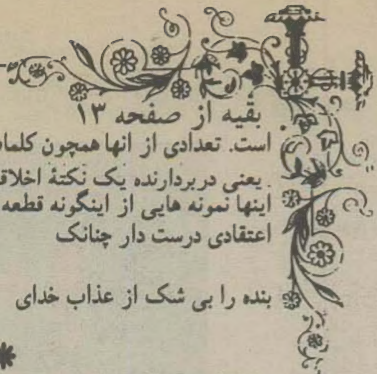 بقیه از صفحه ۱۳
است. تعدادی از انها همچون کلما
. یعنی دربردارنده یک نکتهٔ اخلاق
اینها نمونه هایی از اینگونه قطعه
اعتقادی درست دار چنانک
بنده را بی شک از عذاب خدای